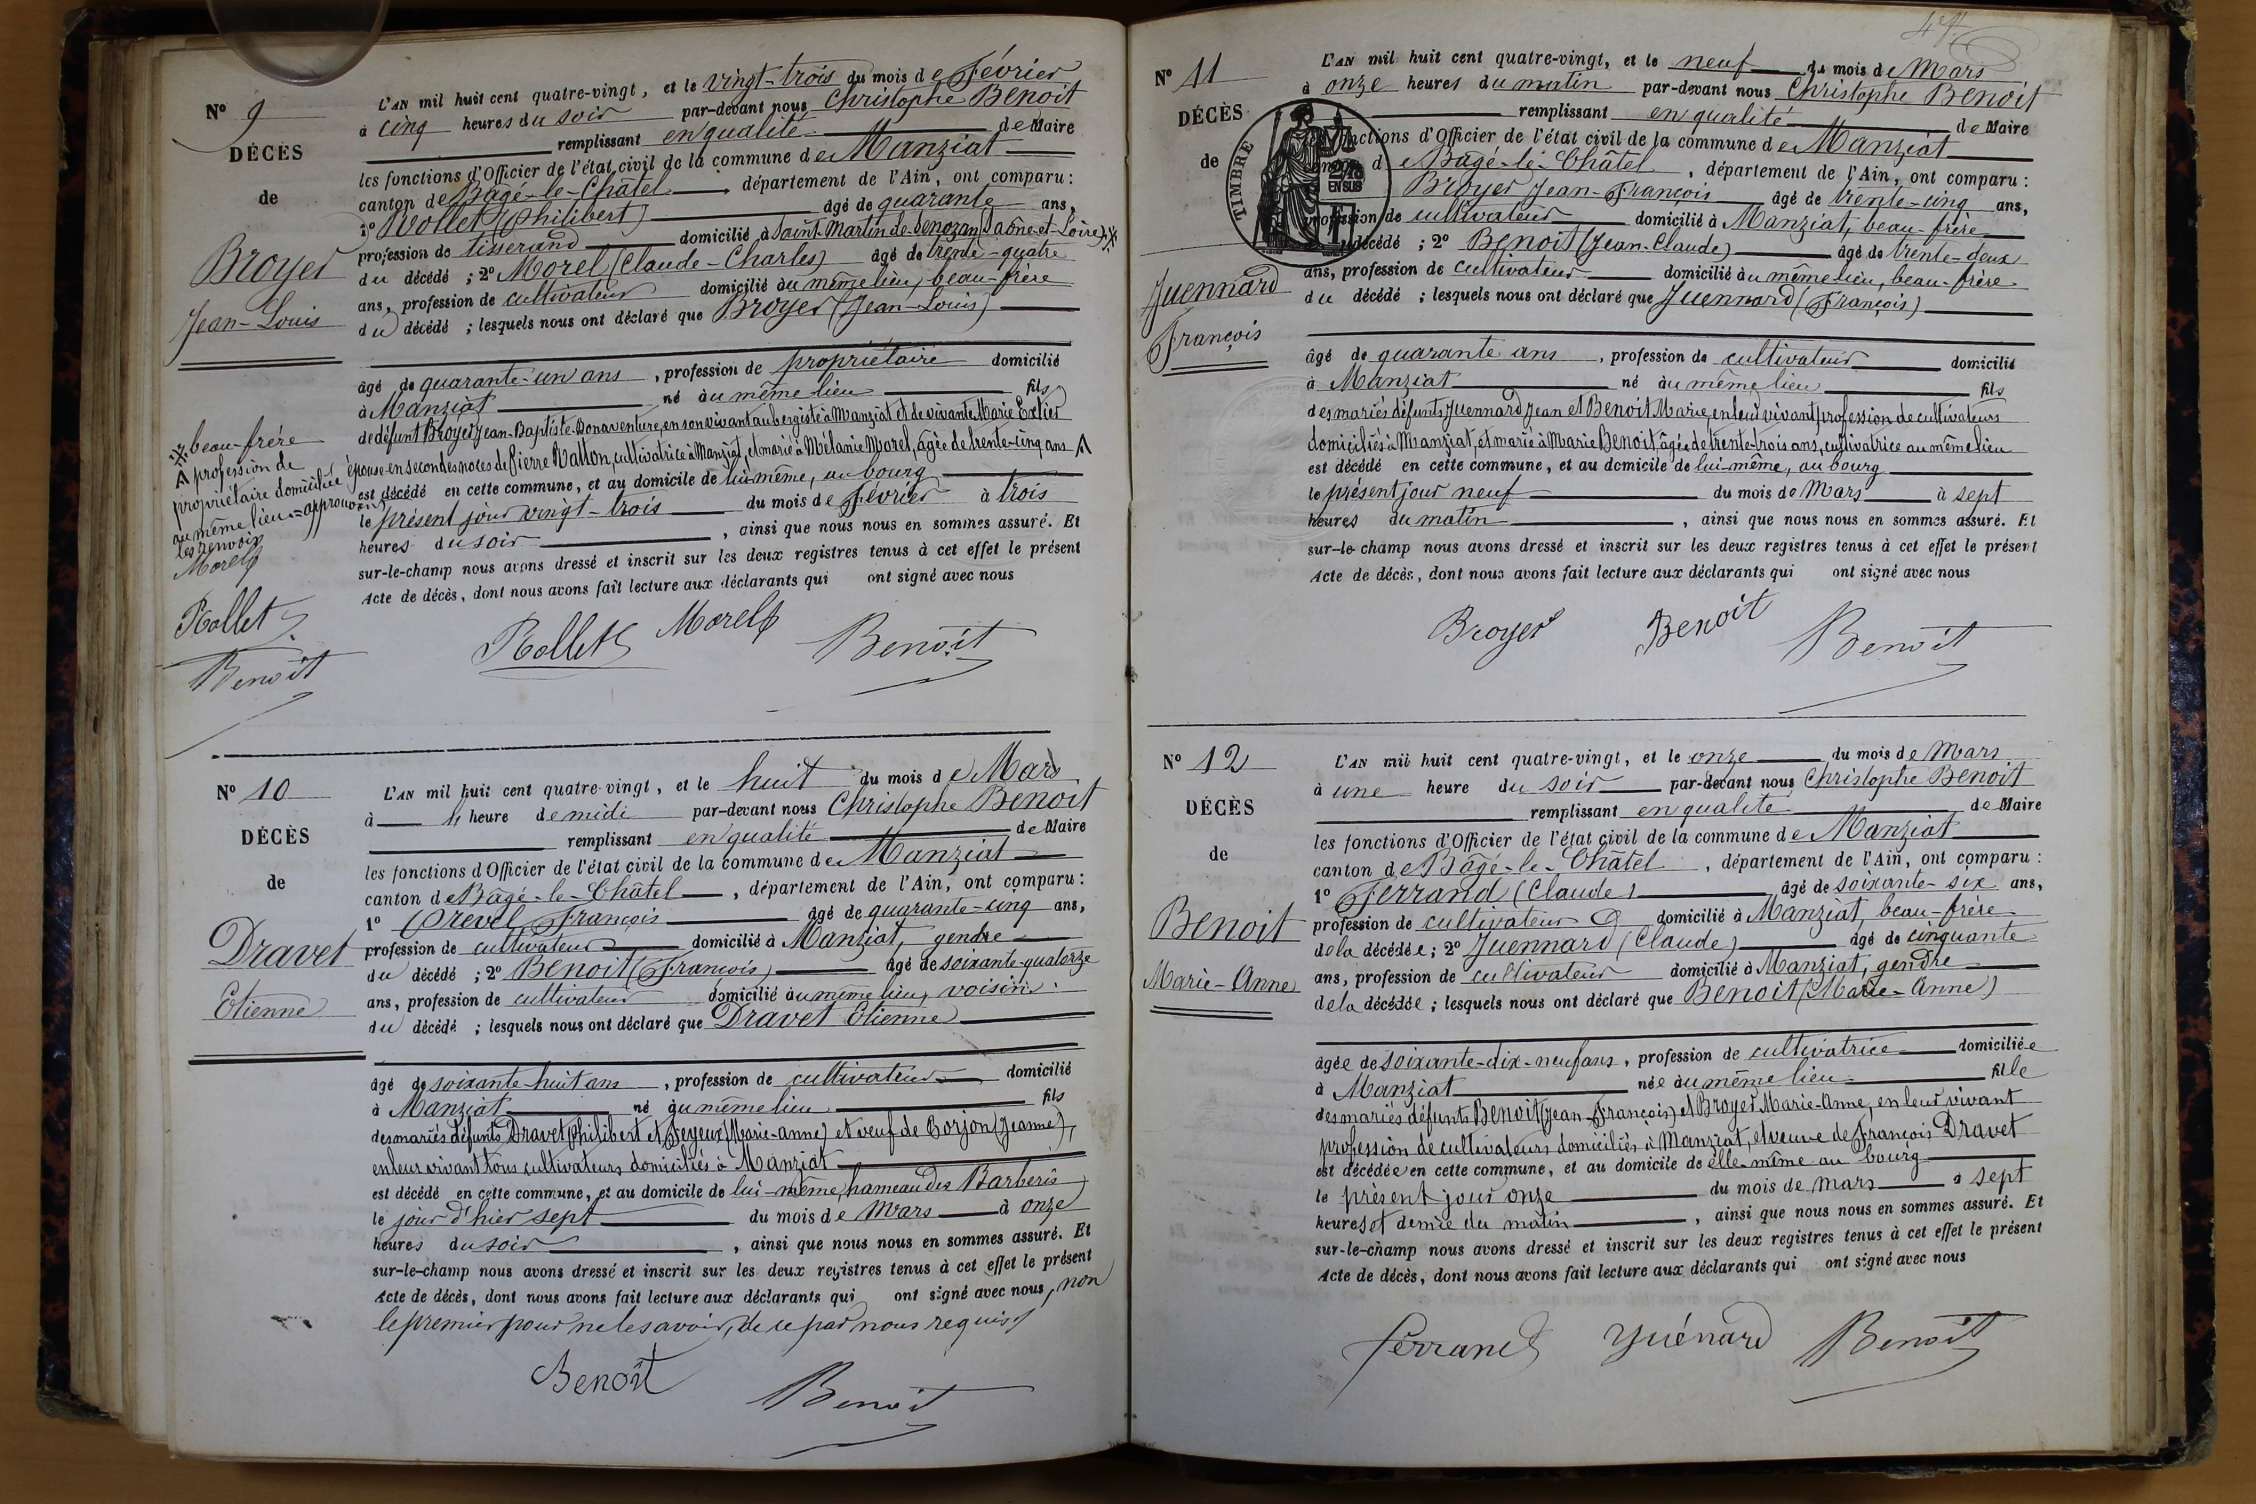 Nº 9
DÉCÈS
de
Broyer
Jean-Louis
L'AN mil huit cent quatre-vingt, et le vingt-trois du mois de Février
à cinq heures du soir par-devant nous Christophe Benoit
remplissant en qualité de Maire
les fonctions d'Officier de l'état civil de la commune de Manziat
canton de Bâgé-le-Châtel, département de l'Ain, ont comparu :
1º Rollet (Philibert) âgé de quarante ans,
profession de tisserand domicilié à Saint-Martin-de-Senozan (Saône-et-Loire) ※
du décédé ; 2º Morel (Claude-Charles) âgé de trente-quatre
ans, profession de cultivateur domicilié au même lieu, beau-frère
du décédé ; lesquels nous ont déclaré que Broyer (Jean-Louis)
âgé de quarante-un ans, profession de propriétaire domicilié
à Manziat né au même lieu fils
de défunt Broyer Jean-Baptiste-Bonaventure, en son vivant aubergiste à Manziat et de vivante Marie Extier
épouse en secondes noces de Pierre Vallon, cultivatrice à Manziat, et marié à Mélanie Morel, âgée de trente-cinq ans Λ
est décédé en cette commune, et au domicile de lui-même, au bourg
le présent jour vingt-trois du mois de Février à trois
heures du soir, ainsi que nous nous en sommes assuré. Et
sur-le-champ nous avons dressé et inscrit sur les deux registres tenus à cet effet le présent
Acte de décès, dont nous avons fait lecture aux déclarants qui ont signé avec nous
※ beau-frère
Λ profession de
propriétaire domiciliée
au même lieu = approuvons
les renvois
Morel
Rollet
Benoit
Rollet Morel Benoit
Nº 10
DÉCÈS
de
Dravet
Etienne
L'AN mil huit cent quatre-vingt, et le huit du mois de Mars
à heure de midi par-devant nous Christophe Benoit
remplissant en qualité de Maire
les fonctions d'Officier de l'état civil de la commune de Manziat
canton de Bâgé-le-Châtel, département de l'Ain, ont comparu :
1º Prevel François âgé de quarante-cinq ans,
profession de cultivateur domicilié à Manziat, gendre
du décédé ; 2º Benoit (François) âgé de soixante-quatorze
ans, profession de cultivateur domicilié au même lieu, voisin
du décédé ; lesquels nous ont déclaré que Dravet Etienne
âgé de soixante-huit ans, profession de cultivateur domicilié
à Manziat né au même lieu fils
des mariés défunts Dravet Philibert et Feyeux (Marie-Anne) et veuf de Borjon (Jeanne),
en leur vivant tous cultivateurs domiciliés à Manziat
est décédé en cette commune, et au domicile de lui-même, hameau des Barberis
le jour d'hier sept du mois de Mars à onze
heures du soir, ainsi que nous nous en sommes assuré. Et
sur-le-champ nous avons dressé et inscrit sur les deux registres tenus à cet effet le présent
Acte de décès, dont nous avons fait lecture aux déclarants qui ont signé avec nous, non
le premier pour ne le savoir, de ce par nous requis
Benoît Benoit
47
Nº 11
DÉCÈS
de
Juennard
François
TIMBRE
2/10
EN SUS
L'AN mil huit cent quatre-vingt, et le neuf du mois de Mars
à onze heures du matin par-devant nous Christophe Benoit
remplissant en qualité de Maire
fonctions d'Officier de l'état civil de la commune de Manziat
de Bâgé-le-Châtel, département de l'Ain, ont comparu :
Broyer Jean-François âgé de trente-cinq ans,
profession de cultivateur domicilié à Manziat, beau-frère
décédé ; 2º Benoit (Jean-Claude) âgé de trente-deux
ans, profession de cultivateur domicilié au même lieu, beau-frère
du décédé ; lesquels nous ont déclaré que Juennard (François)
âgé de quarante ans, profession de cultivateur domicilié
à Manziat né au même lieu fils
des mariés défunts Juennard Jean et Benoit Marie, en leur vivant profession de cultivateurs
domiciliés à Manziat, et marié à Marie Benoit, âgée de trente-trois ans, cultivatrice au même lieu
est décédé en cette commune, et au domicile de lui-même, au bourg
le présent jour neuf du mois de Mars à sept
heures du matin, ainsi que nous nous en sommes assuré. Et
sur-le-champ nous avons dressé et inscrit sur les deux registres tenus à cet effet le présent
Acte de décès, dont nous avons fait lecture aux déclarants qui ont signé avec nous
Broyer Benoit Benoit
Nº 12
DÉCÈS
de
Benoit
Marie-Anne
L'AN mil huit cent quatre-vingt, et le onze du mois de Mars
à une heure du soir par-devant nous Christophe Benoit
remplissant en qualité de Maire
les fonctions d'Officier de l'état civil de la commune de Manziat
canton de Bâgé-le-Châtel, département de l'Ain, ont comparu :
1º Ferrand (Claude) âgé de soixante-six ans,
profession de cultivateur domicilié à Manziat, beau-frère
de la décédée ; 2º Juennard (Claude) âgé de cinquante
ans, profession de cultivateur domicilié à Manziat, gendre
de la décédée ; lesquels nous ont déclaré que Benoit (Marie-Anne)
âgée de soixante-dix-neuf ans, profession de cultivatrice domiciliée
à Manziat née au même lieu fille
des mariés défunts Benoit (Jean-François) et Broyer Marie-Anne, en leur vivant
profession de cultivateurs domiciliés à Manziat, et veuve de François Dravet
est décédée en cette commune, et au domicile de elle-même au bourg
le présent jour onze du mois de mars à sept
heures et demie du matin, ainsi que nous nous en sommes assuré. Et
sur-le-champ nous avons dressé et inscrit sur les deux registres tenus à cet effet le présent
Acte de décès, dont nous avons fait lecture aux déclarants qui ont signé avec nous
Ferrand Juénard Benoit